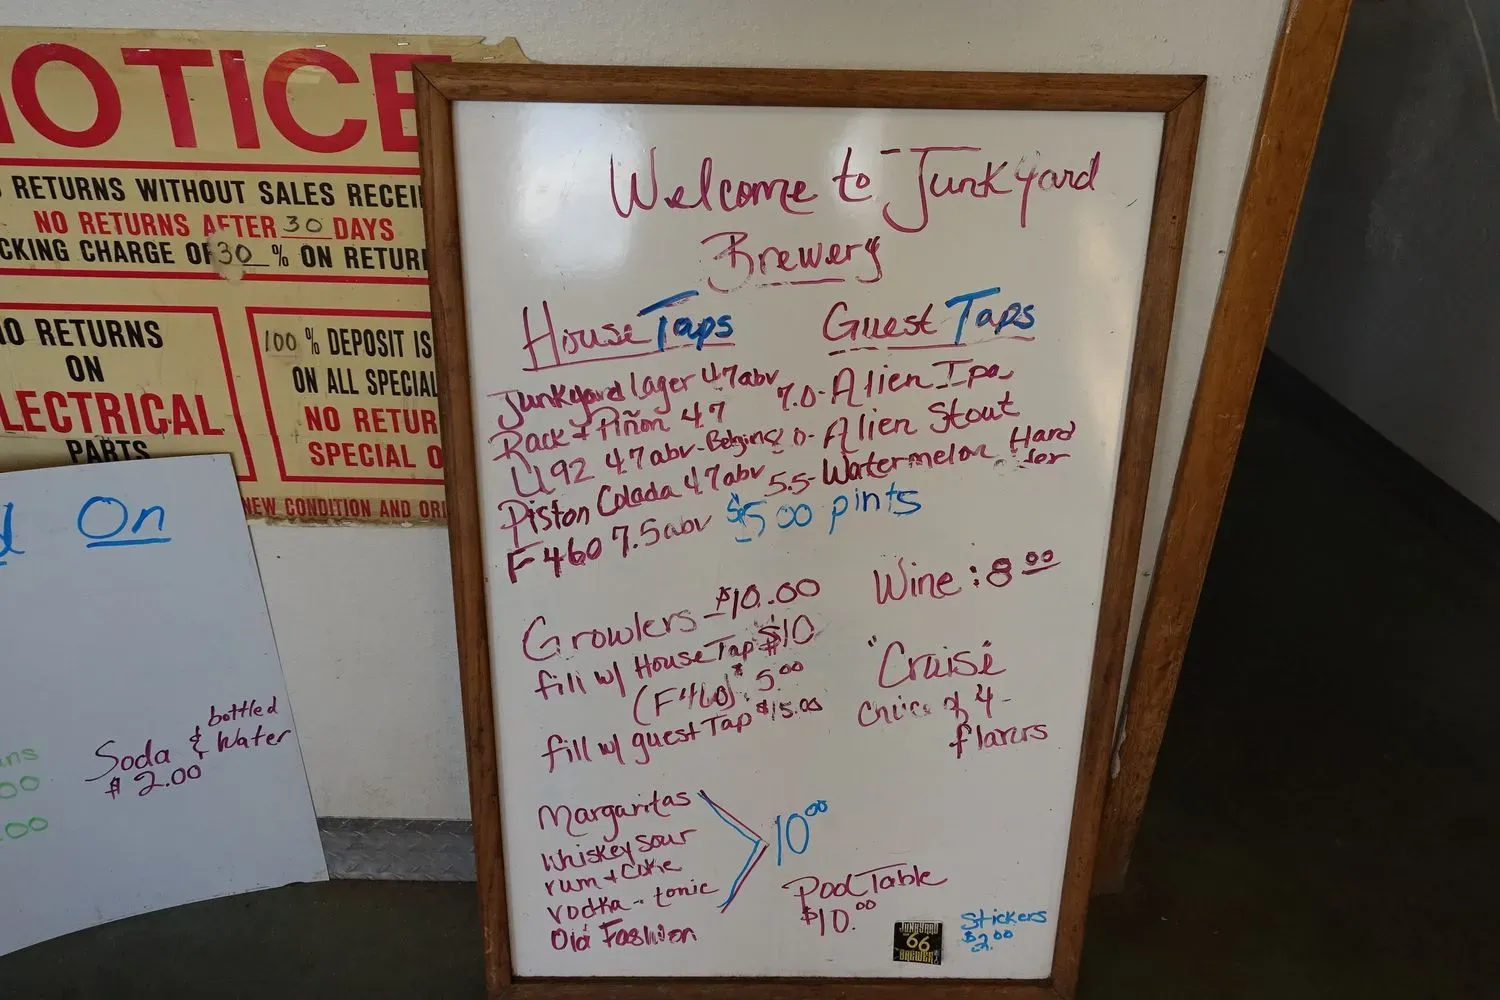 NOTICE
RETURNS WITHOUT SALES RECEI
NO RETURNS AFTER 30 DAYS
CKING CHARGE OF 30 % ON RETUR
O RETURNS
ON
LECTRICAL
PARTS
100 % DEPOSIT IS
ON ALL SPECIAL
NO RETUR
SPECIAL O
NEW CONDITION AND ORI
On
bottled
Soda & Water
$2.00
Welcome to Junkyard
Brewery
House Taps
Junkyard lager 4.7abv
Rack + Piñon 4.7
U92 4.7abv-Belgin
Piston Colada 4.7abv
F460 7.5abv
Guest Taps
7.0-Alien Ipa
Alien Stout
5.5-Watermelon Hard
$5.00 pints
Growlers $10.00
fill w/ House Tap $10
(F460) 5.00
fill w/ guest Tap $15.00
Wine: 8.00
"Cruise"
Choice of 4
flavors
Margaritas
Whiskey sour
rum + Coke
vodka - tonic
Old Fashion
10.00
Pool Table
$10.00
JUNKYARD
66
BREWERY
Stickers
$2.00